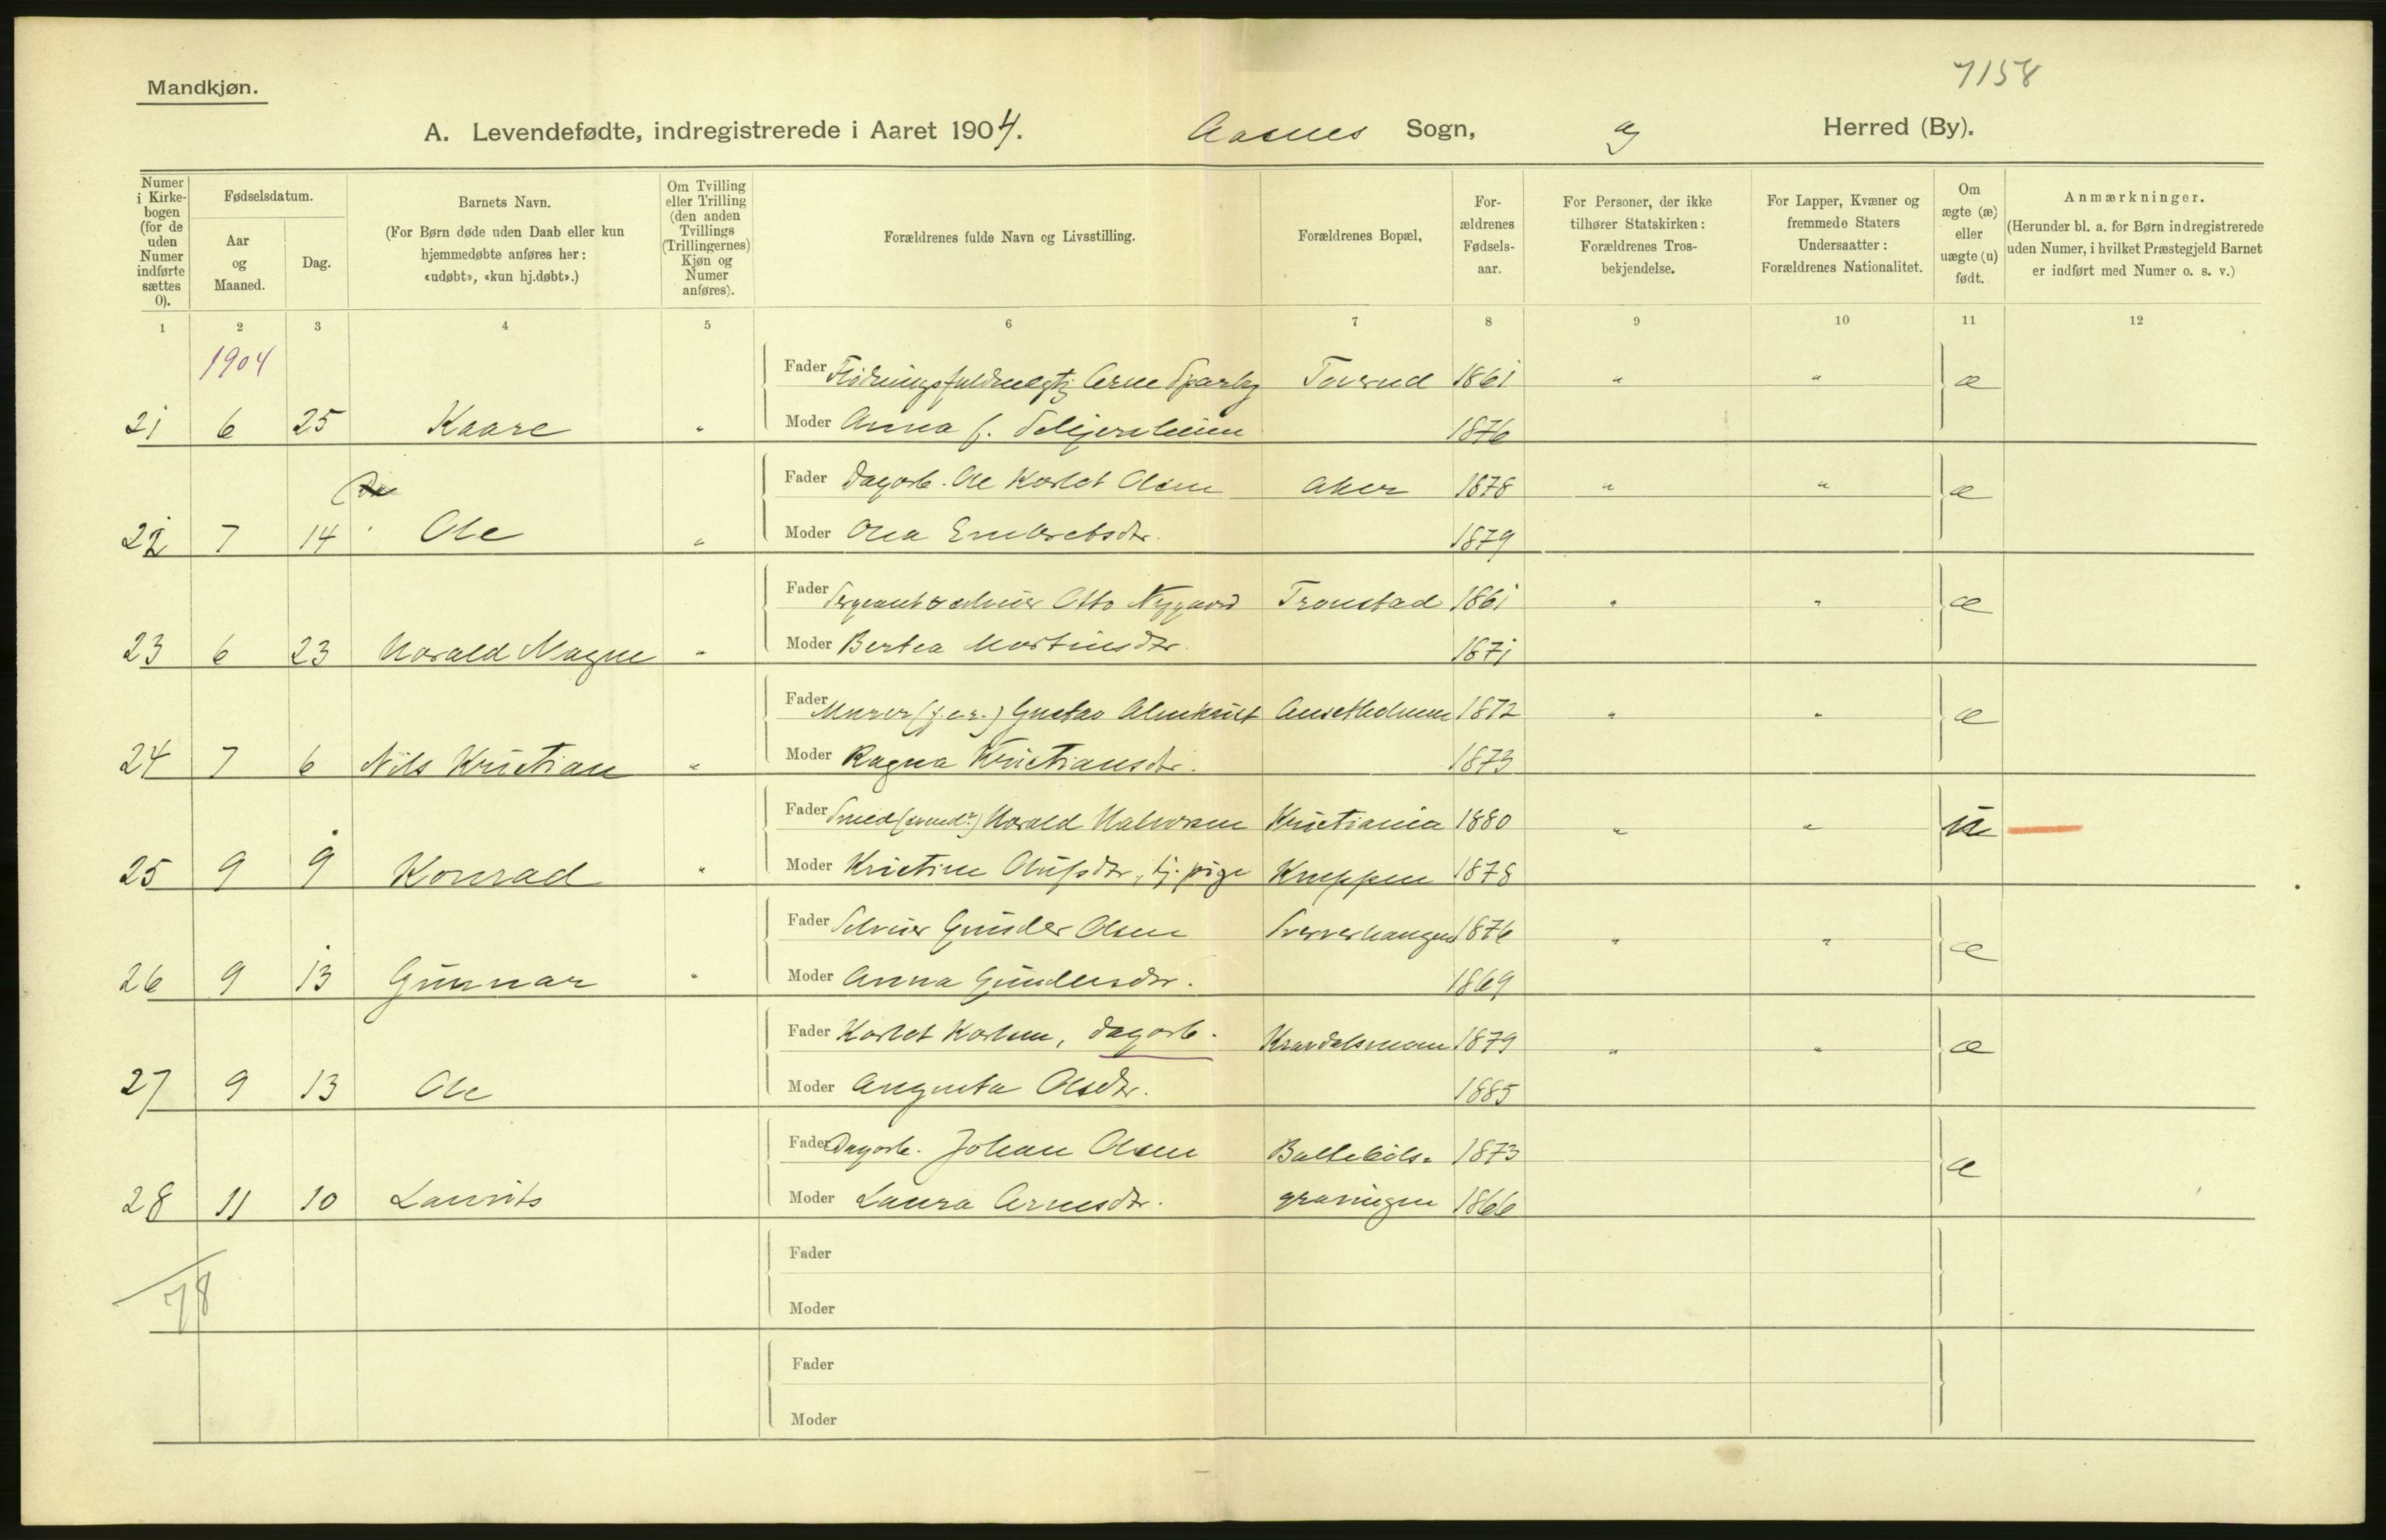 7158
Mandkjøn.
A. Levendefødte, indregistrerede i Aaret 1904. Aasnes Sogn, Herred (By).
Numer i Kirkebogen (for de uden Numer indførte sættes 0).
Fødselsdatum.
Aar og Maaned.
Dag.
Barnets Navn.
(For Børn døde uden Daab eller kun hjemmedøbte anføres her: «udøbt», «kun hj.døbt».)
Om Tvilling eller Trilling (den anden Tvillings (Trillingernes) Kjøn og Numer anføres).
Forældrenes fulde Navn og Livsstilling.
Forældrenes Bopæl,
Forældrenes Fødselsaar.
For Personer, der ikke tilhører Statskirken: Forældrenes Trosbekjendelse.
For Lapper, Kvæner og fremmede Staters Undersaatter: Forældrenes Nationalitet.
Om ægte (æ) eller uægte (u) født.
Anmærkninger.
(Herunder bl. a. for Børn indregistrerede uden Numer, i hvilket Præstegjeld Barnet er indført med Numer o. s. v.)
1 2 3 4 5 6 7 8 9 10 11 12
1904
Fader Arne Sparby 1861 " " æ
21 6 25 Kaare " Moder Anna f. 1876
Fader Dagarb. Ole Karlot Olsen Aker 1878 " " æ
22 7 14 Ole " Moder Olea Embretsdtr. 1879
Fader Sergeant & selveier Otto Nygaard Tronstad 1861 " " æ
23 6 23 Harald Magne " Moder Bertea Martinsdtr. 1871
Fader Murer Gustav 1872 " " æ
24 7 6 Nils Kristian " Moder Ragna Kristiansdtr. 1873
Fader Smed Harald Halvorsen Kristiania 1880 " " u
25 9 9 Konrad " Moder Kristine Olufsdtr, tj. pige Kneppen 1878
Fader Selveier Gunder Olsen 1876 " " æ
26 9 13 Gunnar " Moder Anna Gundersdtr. 1869
Fader Karlot Karlsen, dagarb. 1879 " " æ
27 9 13 Ole Moder Augusta Olsdtr. 1885
Fader Dagarb. Johan Olsen 1873 æ
28 11 10 Laurits Moder Laura Arnesdtr. 1866
78
Fader
Moder
Fader
Moder